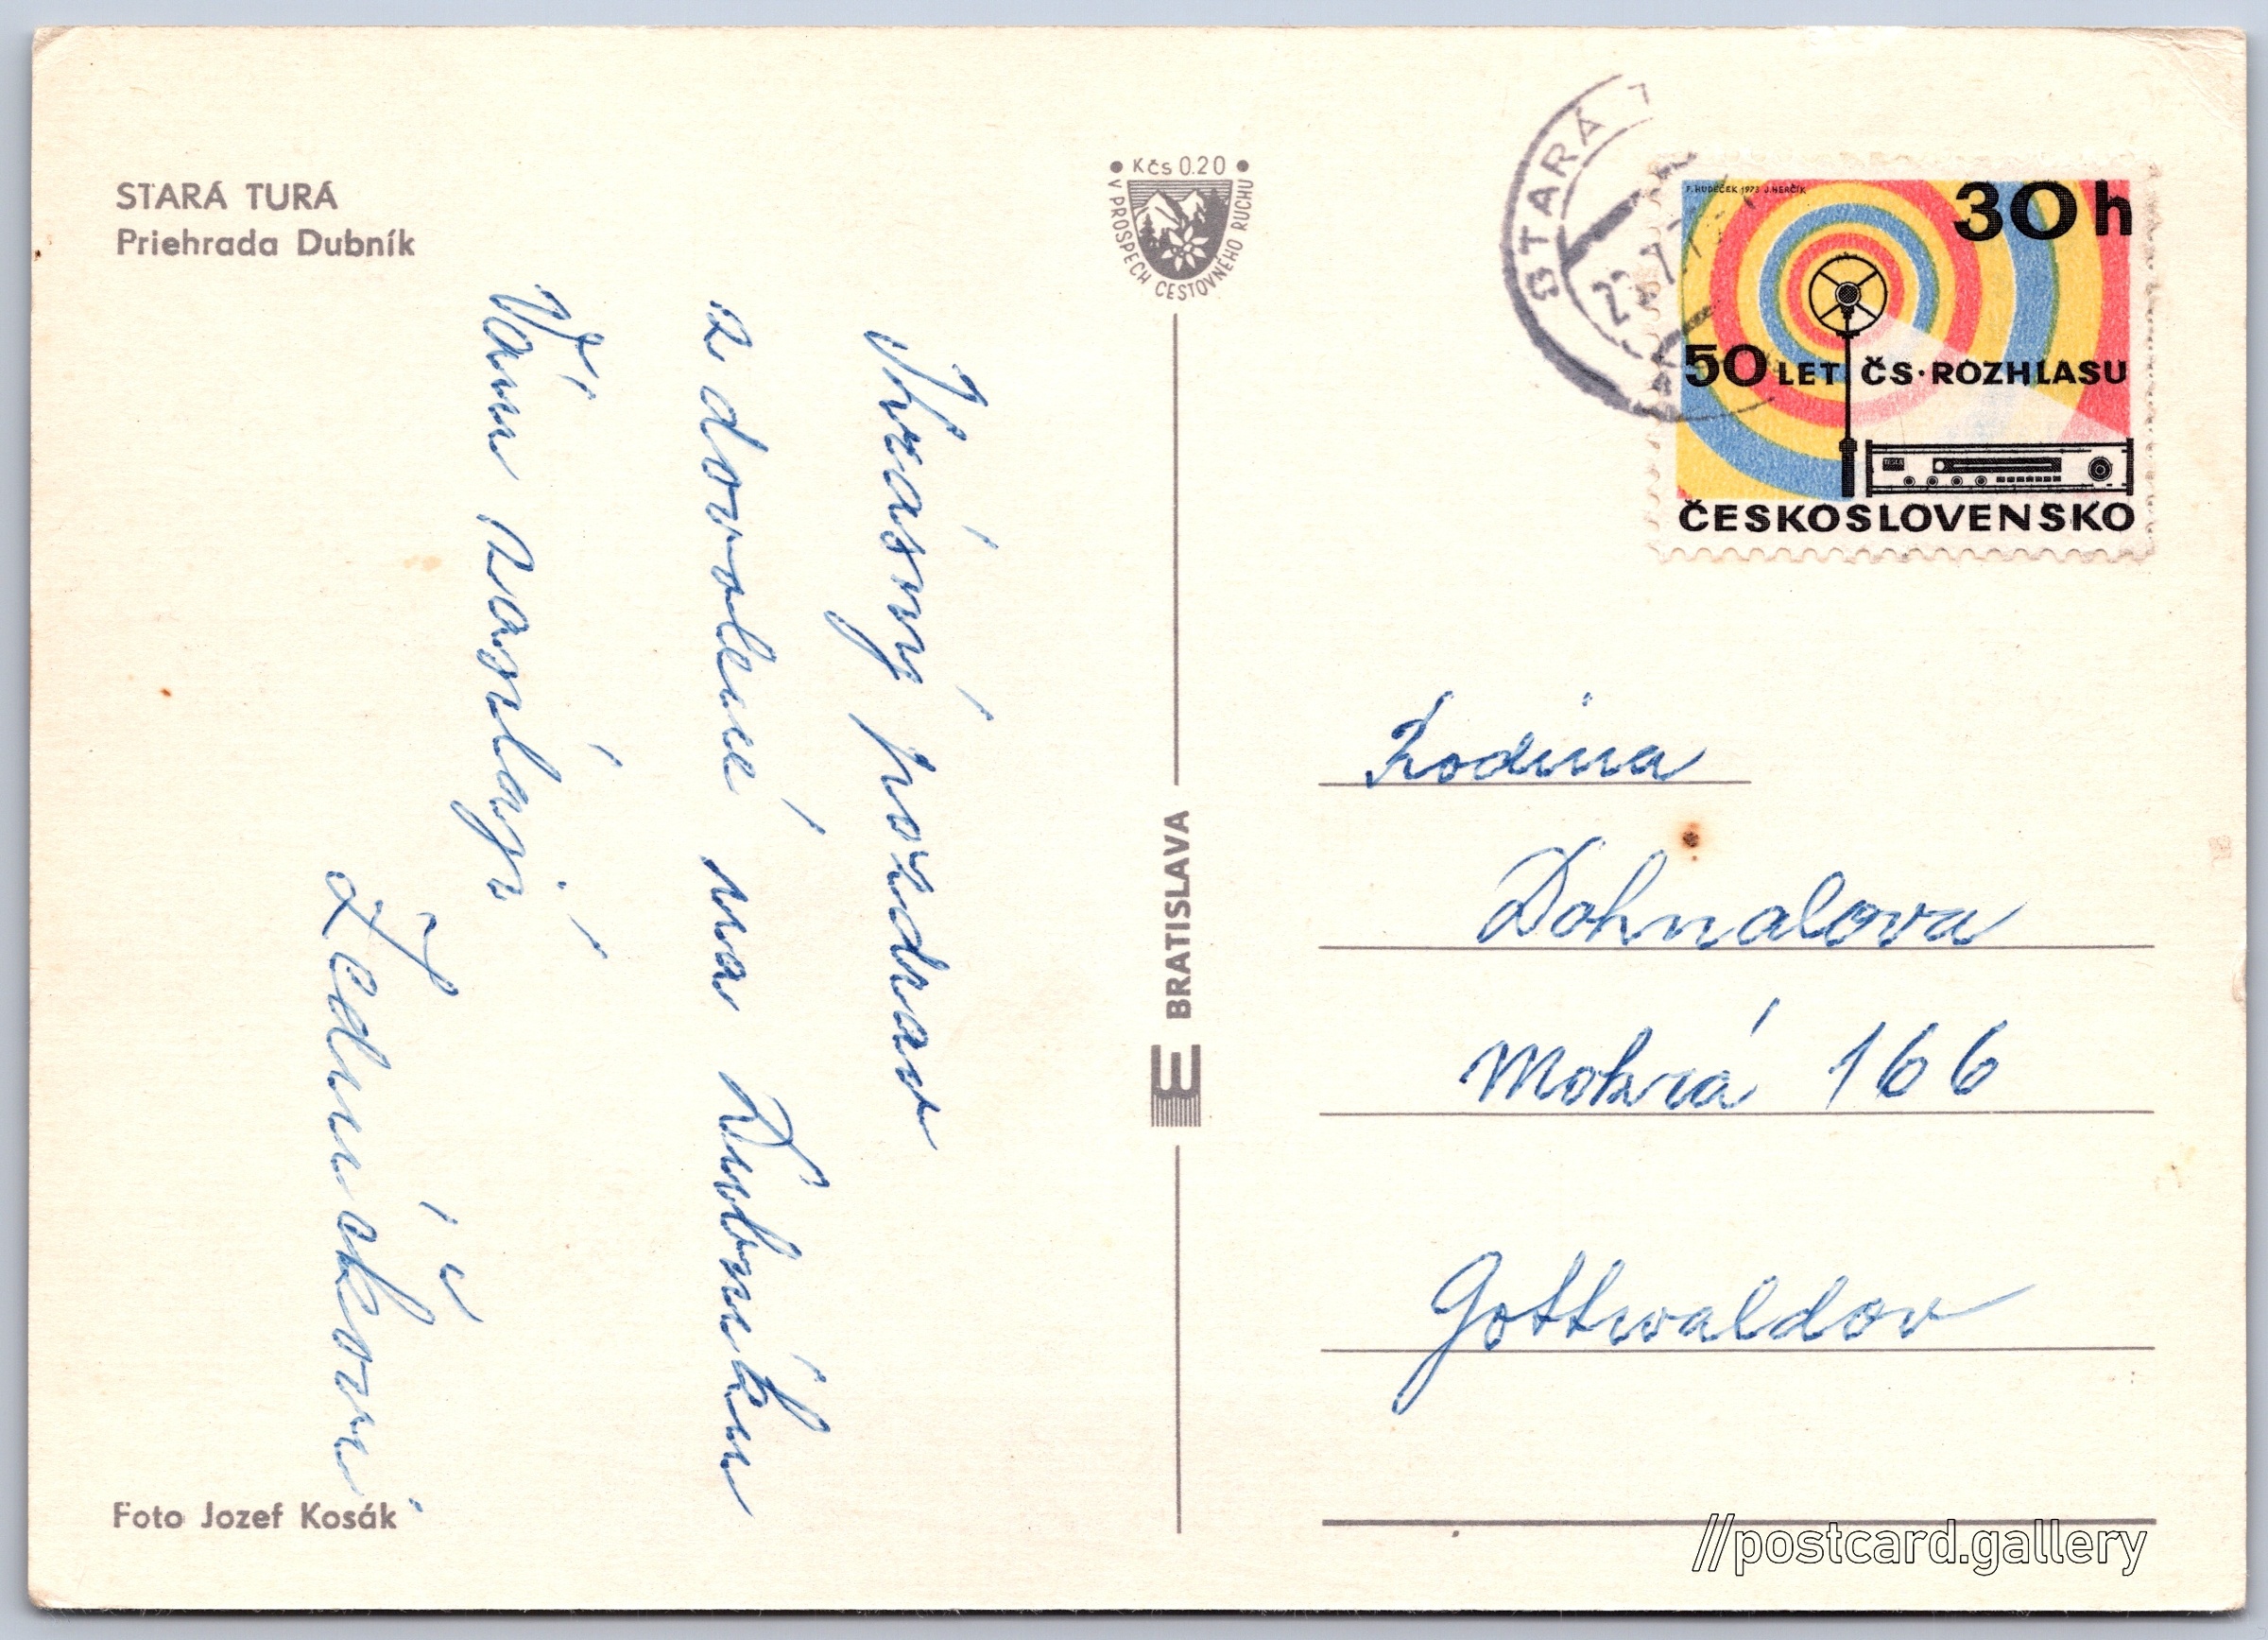 STARÁ TURÁ
Priehrada Dubník
Krásný pozdrav
z dovolené na Dubníku
Vám zasílají
Zedníčkovi
Foto Jozef Kosák
Kčs 0.20
V PROSPECH CESTOVNÉHO RUCHU
BRATISLAVA
STARÁ
F. HUDEČEK 1973 J. HERČÍK
30 h
50 LET ČS·ROZHLASU
TESLA
ČESKOSLOVENSKO
Rodina
Dohnalova
Mokrá 166
Gottwaldov
//postcard.gallery